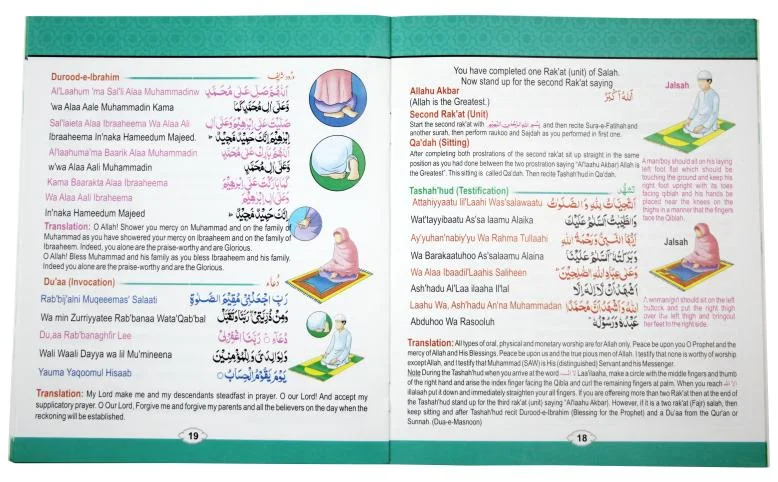 You have completed one Rak'at (unit) of Salah.
Now stand up for the second Rak'at saying
Allahu Akbar اَللّٰهُ اَكْبَرُ
(Allah is the Greatest.)
Second Rak'at (Unit)
Start the second rak'at with بِسْمِ اللّٰهِ الرَّحْمٰنِ الرَّحِيْمِ and then recite Sura-e-Fatihah and
another surah, then perform raukoo and Sajdah as you performed in first one.
Qa'dah (Sitting)
After completing both prostrations of the second rak'at sit up straight in the same
position as you had done between the two prostration saying "Al'laahu Akbar) Allah is
the Greatest". This sitting is called Qa'dah. Then recite Tash'hud in Qa'dah.
Tashah'hud (Testification) تَشَهُّد
Attahiyyaatu lil'Laahi Was'salawaatu اَلتَّحِيَّاتُ لِلّٰهِ وَ الصَّلَوٰتُ
Wat'tayyibaatu As'sa laamu Alaika وَالطَّيِّبٰتُ اَلسَّلَامُ عَلَيْكَ
Ay'yuhan'nabiy'yu Wa Rahma Tullaahi اَيُّهَا النَّبِيُّ وَرَحْمَةُ اللّٰهِ
Wa Barakaatuhoo As'salaamu Alaina وَبَرَكَاتُهٗ اَلسَّلَامُ عَلَيْنَا
Wa Alaa Ibaadil'Laahis Saliheen وَعَلٰى عِبَادِ اللّٰهِ الصّٰلِحِيْنَ
Ash'hadu Al'Laa ilaaha Il'lal اَشْهَدُ اَنْ لَّا اِلٰهَ اِلَّا
Laahu Wa, Ash'hadu An'na Muhammadan اللّٰهُ وَاَشْهَدُ اَنَّ مُحَمَّدًا
Abduhoo Wa Rasooluh عَبْدُهٗ وَرَسُوْلُهٗ
Jalsah
A man/boy should sit on his laying
left foot flat which should be
touching the ground and keep his
right foot upright with its toes
facing qiblah and his hands be
placed near the knees on the
thighs in a manner that the fingers
face the Qiblah.
Jalsah
A woman/girl should sit on the left
buttock and put the right thigh
over the left thigh and bring out
her feet to the right side.
Translation: All types of oral, physical and monetary worship are for Allah only. Peace be upon you O Prophet and the
mercy of Allah and His Blessings. Peace be upon us and the true pious men of Allah. I testify that none is worthy of worship
except Allah, and I testify that Muhammad (SAW) is His (distinguished) Servant and his Messenger.
Note During the Tashah'hud when you arrive at the word لا اله Laa'ilaaha, make a circle with the middle fingers and thumb
of the right hand and arise the index finger facing the Qibla and curl the remaining fingers at palm. When you reach الا الله
illalaah put it down and immediately straighten your all fingers. If you are offereing more than two Rak'at then at the end of
the Tashah'hud stand up for the third rak'at (unit) saying "Al'laahu Akbar). However, if it is a two rak'at (Fajr) salah, then
keep sitting and after Tashah'hud recit Durood-e-Ibrahim (Blessing for the Prophet) and a Du'aa from the Qur'an or
Sunnah. (Dua-e-Masnoon)
18
Durood-e-Ibrahim درود شریف
Al'Laahum 'ma Sal'li Alaa Muhammadinw اَللّٰهُمَّ صَلِّ عَلٰى مُحَمَّدٍ
'wa Alaa Aale Muhammadin Kama وَّعَلٰى اٰلِ مُحَمَّدٍ كَمَا
Sal'laieta Alaa Ibraaheema Wa Alaa Ali صَلَّيْتَ عَلٰى اِبْرٰهِيْمَ وَعَلٰى اٰلِ
Ibraaheema In'naka Hameedum Majeed. اِبْرٰهِيْمَ اِنَّكَ حَمِيْدٌ مَّجِيْدٌ
Al'laahuma'ma Baarik Alaa Muhammadin اَللّٰهُمَّ بَارِكْ عَلٰى مُحَمَّدٍ
w'wa Alaa Aali Muhammadin وَّعَلٰى اٰلِ مُحَمَّدٍ
Kama Baarakta Alaa Ibraaheema كَمَا بَارَكْتَ عَلٰى اِبْرٰهِيْمَ
Wa Alaa Aali Ibraheem وَعَلٰى اٰلِ اِبْرٰهِيْمَ
In'naka Hameedum Majeed اِنَّكَ حَمِيْدٌ مَّجِيْدٌ
Translation: O Allah! Shower you mercy on Muhammad and on the family of
Muhammad as you have showered your mercy on Ibraaheem and on the family of
Ibraaheem. Indeed, you alone are the praise-worthy and are Glorious.
O Allah! Bless Muhammad and his family as you bless Ibraaheem and his family.
Indeed you alone are the praise-worthy and are the Glorious.
Du'aa (Invocation) دُعَاء
Rab'bij'alni Muqeeemas' Salaati رَبِّ اجْعَلْنِىْ مُقِيْمَ الصَّلٰوةِ
Wa min Zurriyyatee Rab'banaa Wata'Qab'bal وَمِنْ ذُرِّيَّتِىْ رَبَّنَا وَتَقَبَّلْ
Du,aa Rab'banaghfir Lee دُعَآءِ رَبَّنَا اغْفِرْلِىْ
Wali Waali Dayya wa lil Mu'mineena وَلِوَالِدَىَّ وَلِلْمُؤْمِنِيْنَ
Yauma Yaqoomul Hisaab يَوْمَ يَقُوْمُ الْحِسَابُ
Translation: My Lord make me and my descendants steadfast in prayer. O our Lord! And accept my
supplicatory prayer. O Our Lord, Forgive me and forgive my parents and all the believers on the day when the
reckoning will be established.
19